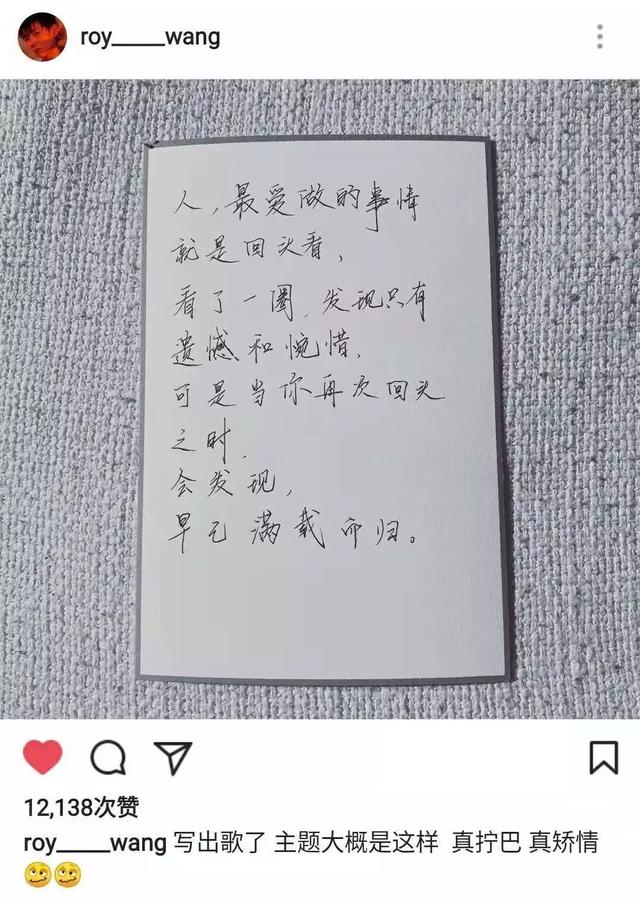 roy_____wang
人,最爱做的事情
就是回头看,
看了一圈,发现只有
遗憾和惋惜,
可是当你再次回头
之时,
会发现,
早已满载而归。
12,138次赞
roy_____wang 写出歌了 主题大概是这样 真拧巴 真矫情
🥴🥴